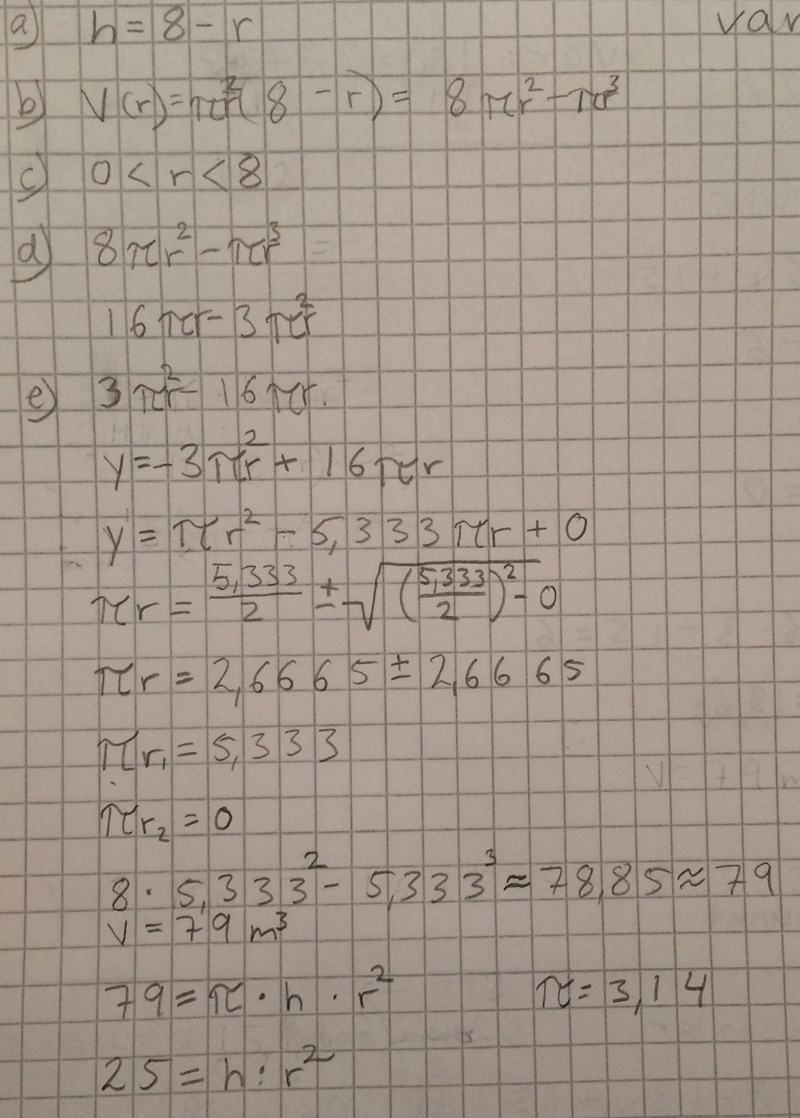 a) h = 8 - r var
b) V(r) = πr²(8 - r) = 8πr² - πr³
c) 0 < r < 8
d) 8πr² - πr³ =
16πr - 3πr²
e) 3πr² - 16πr.
y = -3πr² + 16πr
y = πr² - 5,333πr + 0
πr = 5,333/2 ± √((5,333/2)² - 0)
πr = 2,6665 ± 2,6665
πr₁ = 5,333
πr₂ = 0
8 · 5,333² - 5,333³ ≈ 78,85 ≈ 79
V = 79 m³
79 = π · h · r² π = 3,14
25 = h · r²